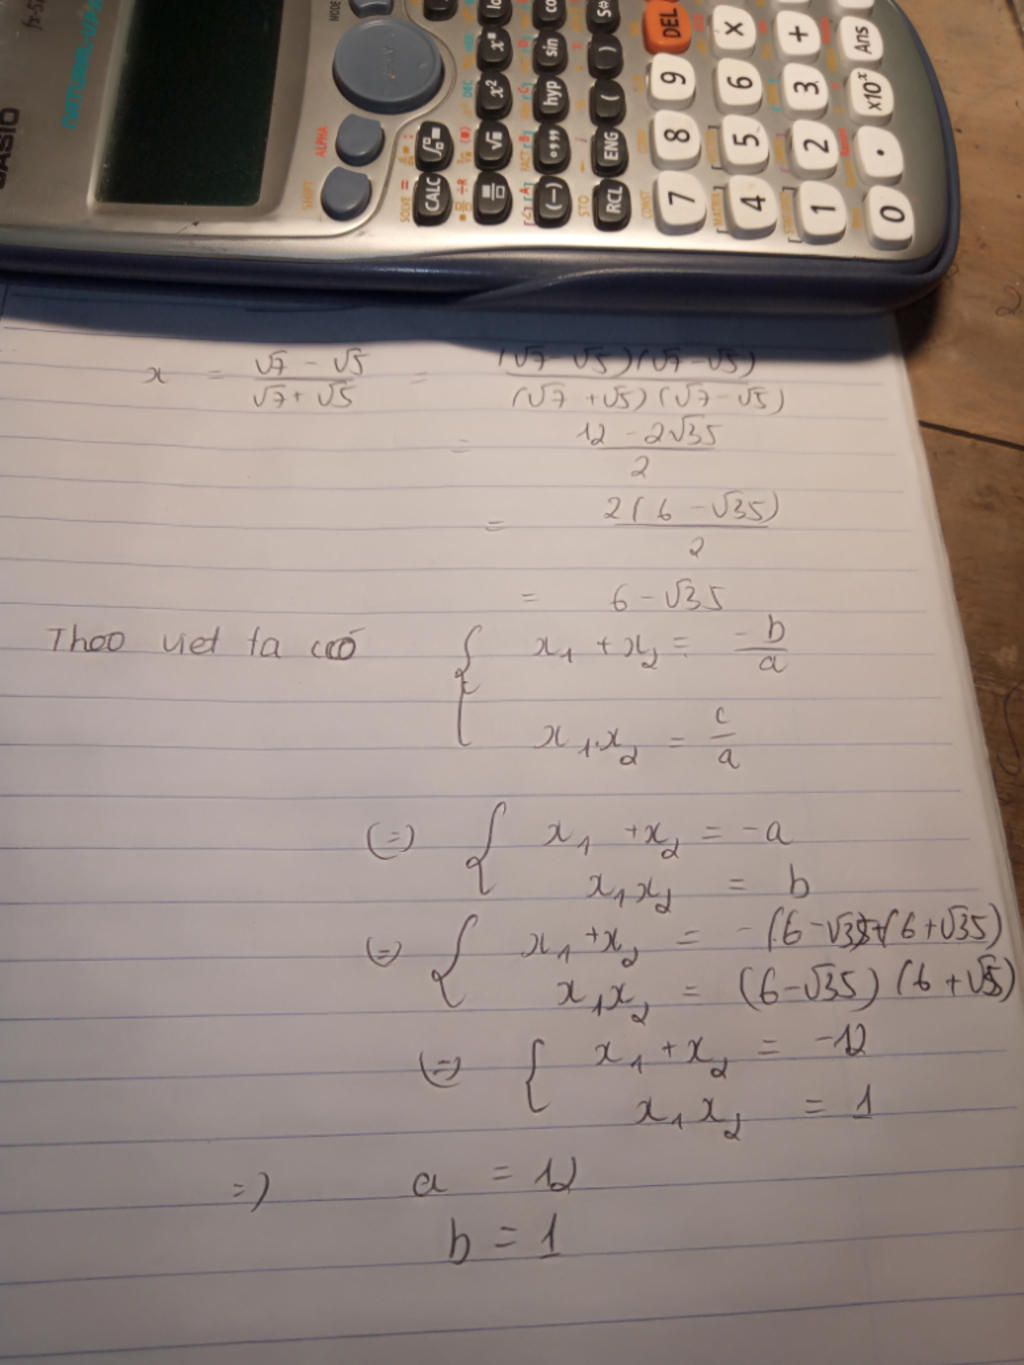 CASIO
NATURAL-V.P.A.M.
MODE
ALPHA
SHIFT
SOLVE =
CALC
x²
x^■
hyp
sin
(−)
STO
RCL
ENG
(
)
S⇔
CONST
DEL
7
8
9
4
5
6
×
1
2
3
+
0
.
×10ˣ
Ans
x = (√7 − √5)/(√7 + √5) = ((√7 √5)(√7 − √5))/((√7 + √5)(√7 − √5))
= (12 − 2√35)/2
= (2(6 − √35))/2
= 6 − √35
Theo viet ta có { x₁ + x₂ = −b/a
x₁.x₂ = c/a
(=) { x₁ + x₂ = −a
x₁x₂ = b
(=) { x₁ + x₂ = −(6 − √35 + (6 + √35)
x₁x₂ = (6 − √35)(6 + √35)
(=) { x₁ + x₂ = −12
x₁x₂ = 1
=) a = 12
b = 1